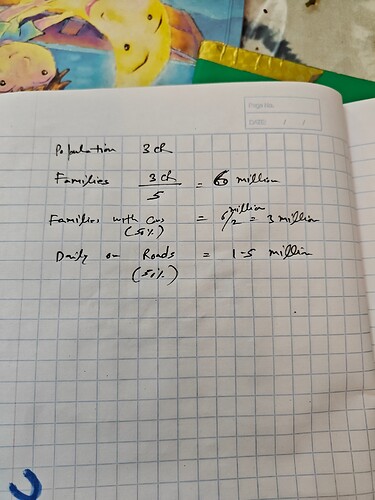 Page No.
Date: / /
Population 3 cr
Families 3 cr / 5 = 6 million
Families with Cars (50%) = 6 million/2 = 3 million
Daily on Roads (50%) = 1.5 million